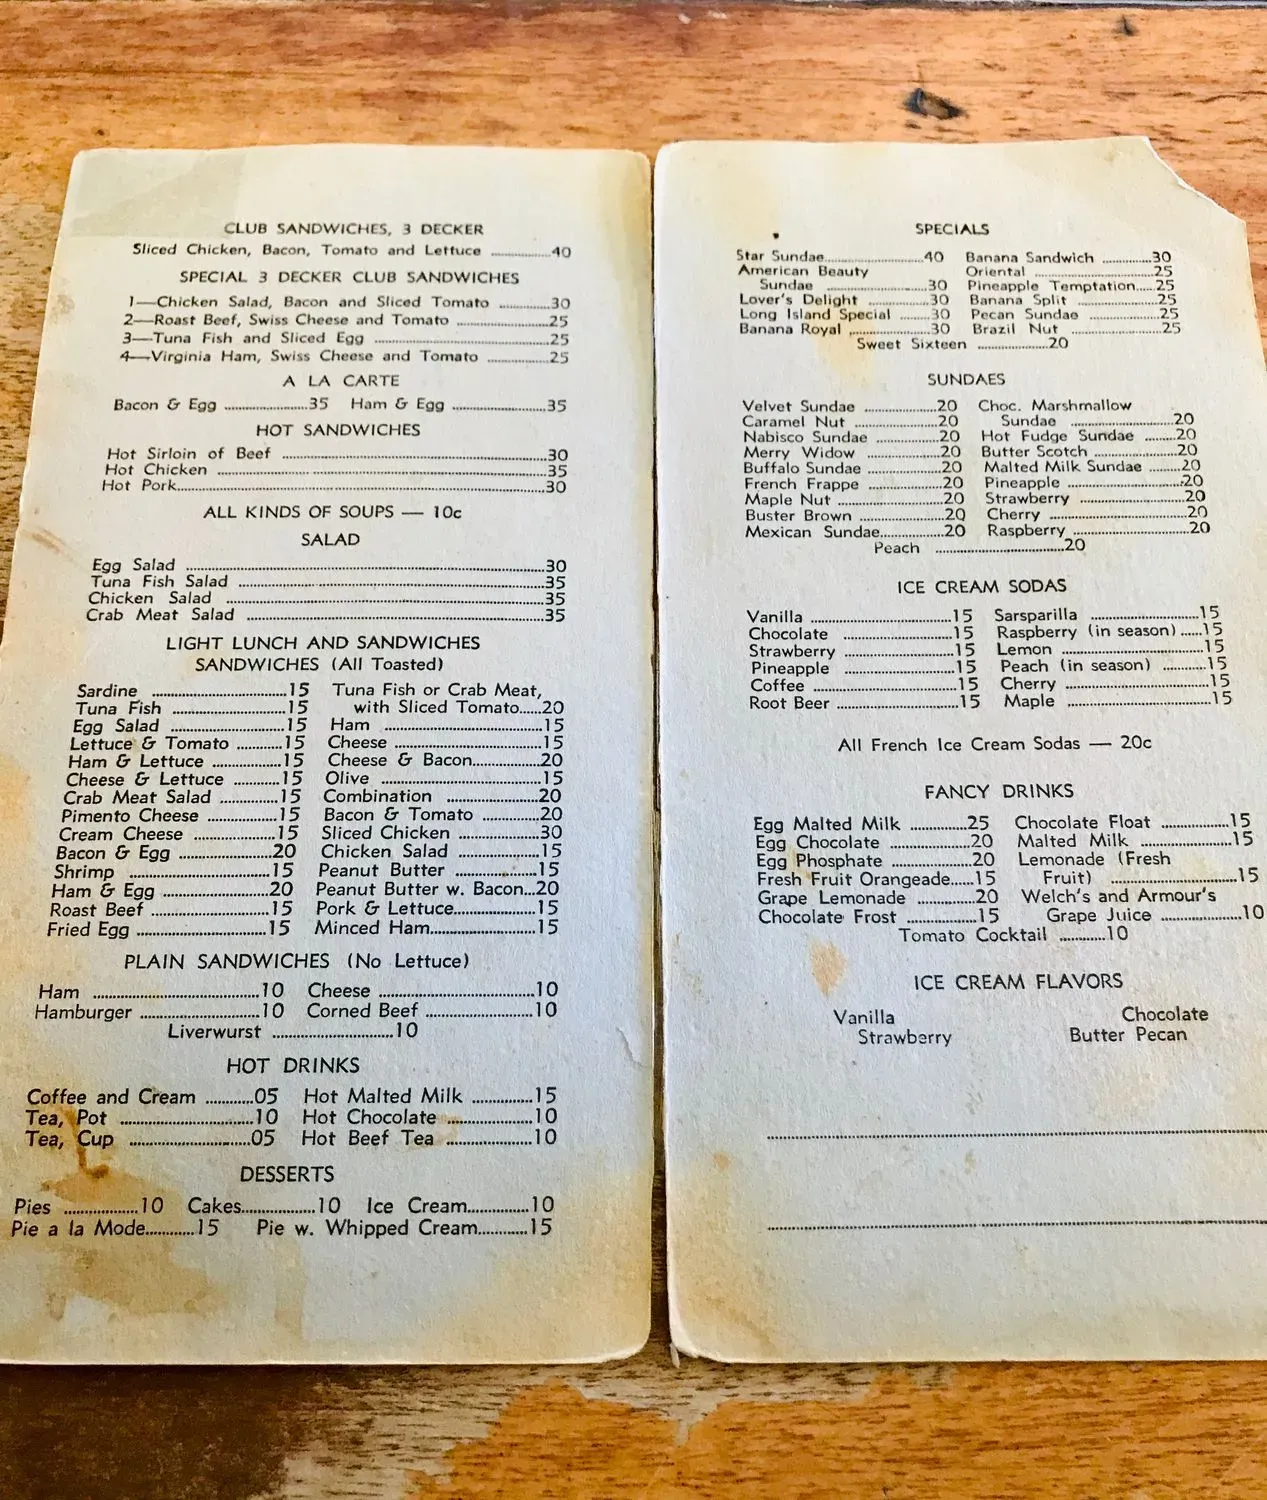 CLUB SANDWICHES, 3 DECKER
Sliced Chicken, Bacon, Tomato and Lettuce ..............40
SPECIAL 3 DECKER CLUB SANDWICHES
1—Chicken Salad, Bacon and Sliced Tomato ..............30
2—Roast Beef, Swiss Cheese and Tomato ..............25
3—Tuna Fish and Sliced Egg ..............25
4—Virginia Ham, Swiss Cheese and Tomato ..............25
A LA CARTE
Bacon & Egg ..............35 Ham & Egg ..............35
HOT SANDWICHES
Hot Sirloin of Beef ..............30
Hot Chicken ..............35
Hot Pork..............30
ALL KINDS OF SOUPS — 10c
SALAD
Egg Salad ..............30
Tuna Fish Salad ..............35
Chicken Salad ..............35
Crab Meat Salad ..............35
LIGHT LUNCH AND SANDWICHES
SANDWICHES (All Toasted)
Sardine ..............15
Tuna Fish ..............15
Egg Salad ..............15
Lettuce & Tomato ..............15
Ham & Lettuce ..............15
Cheese & Lettuce ..............15
Crab Meat Salad ..............15
Pimento Cheese ..............15
Cream Cheese ..............15
Bacon & Egg ..............20
Shrimp ..............15
Ham & Egg ..............20
Roast Beef ..............15
Fried Egg ..............15
Tuna Fish or Crab Meat,
with Sliced Tomato.....20
Ham ..............15
Cheese ..............15
Cheese & Bacon..............20
Olive ..............15
Combination ..............20
Bacon & Tomato ..............20
Sliced Chicken ..............30
Chicken Salad ..............15
Peanut Butter ..............15
Peanut Butter w. Bacon...20
Pork & Lettuce..............15
Minced Ham..............15
PLAIN SANDWICHES (No Lettuce)
Ham ..............10 Cheese ..............10
Hamburger ..............10 Corned Beef ..............10
Liverwurst ..............10
HOT DRINKS
Coffee and Cream ...........05 Hot Malted Milk ..............15
Tea, Pot ..............10 Hot Chocolate ..............10
Tea, Cup ..............05 Hot Beef Tea ..............10
DESSERTS
Pies ..............10 Cakes..............10 Ice Cream..............10
Pie a la Mode...........15 Pie w. Whipped Cream...........15
SPECIALS
Star Sundae..............40
American Beauty
Sundae ..............30
Lover's Delight ..............30
Long Island Special .......30
Banana Royal ..............30
Banana Sandwich ...........30
Oriental ..............25
Pineapple Temptation.....25
Banana Split ..............25
Pecan Sundae ..............25
Brazil Nut ..............25
Sweet Sixteen ..............20
SUNDAES
Velvet Sundae ..............20
Caramel Nut ..............20
Nabisco Sundae ..............20
Merry Widow ..............20
Buffalo Sundae ..............20
French Frappe ..............20
Maple Nut ..............20
Buster Brown ..............20
Mexican Sundae..............20
Choc. Marshmallow
Sundae ..............20
Hot Fudge Sundae .......20
Butter Scotch ..............20
Malted Milk Sundae .......20
Pineapple ..............20
Strawberry ..............20
Cherry ..............20
Raspberry ..............20
Peach ..............20
ICE CREAM SODAS
Vanilla ..............15 Sarsparilla ..............15
Chocolate ..............15 Raspberry (in season) .....15
Strawberry ..............15 Lemon ..............15
Pineapple ..............15 Peach (in season) ..........15
Coffee ..............15 Cherry ..............15
Root Beer ..............15 Maple ..............15
All French Ice Cream Sodas — 20c
FANCY DRINKS
Egg Malted Milk ..............25
Egg Chocolate ..............20
Egg Phosphate ..............20
Fresh Fruit Orangeade.....15
Grape Lemonade ..............20
Chocolate Frost ..............15
Chocolate Float ..............15
Malted Milk ..............15
Lemonade (Fresh
Fruit) ..............15
Welch's and Armour's
Grape Juice ..............10
Tomato Cocktail ..........10
ICE CREAM FLAVORS
Vanilla Chocolate
Strawberry Butter Pecan